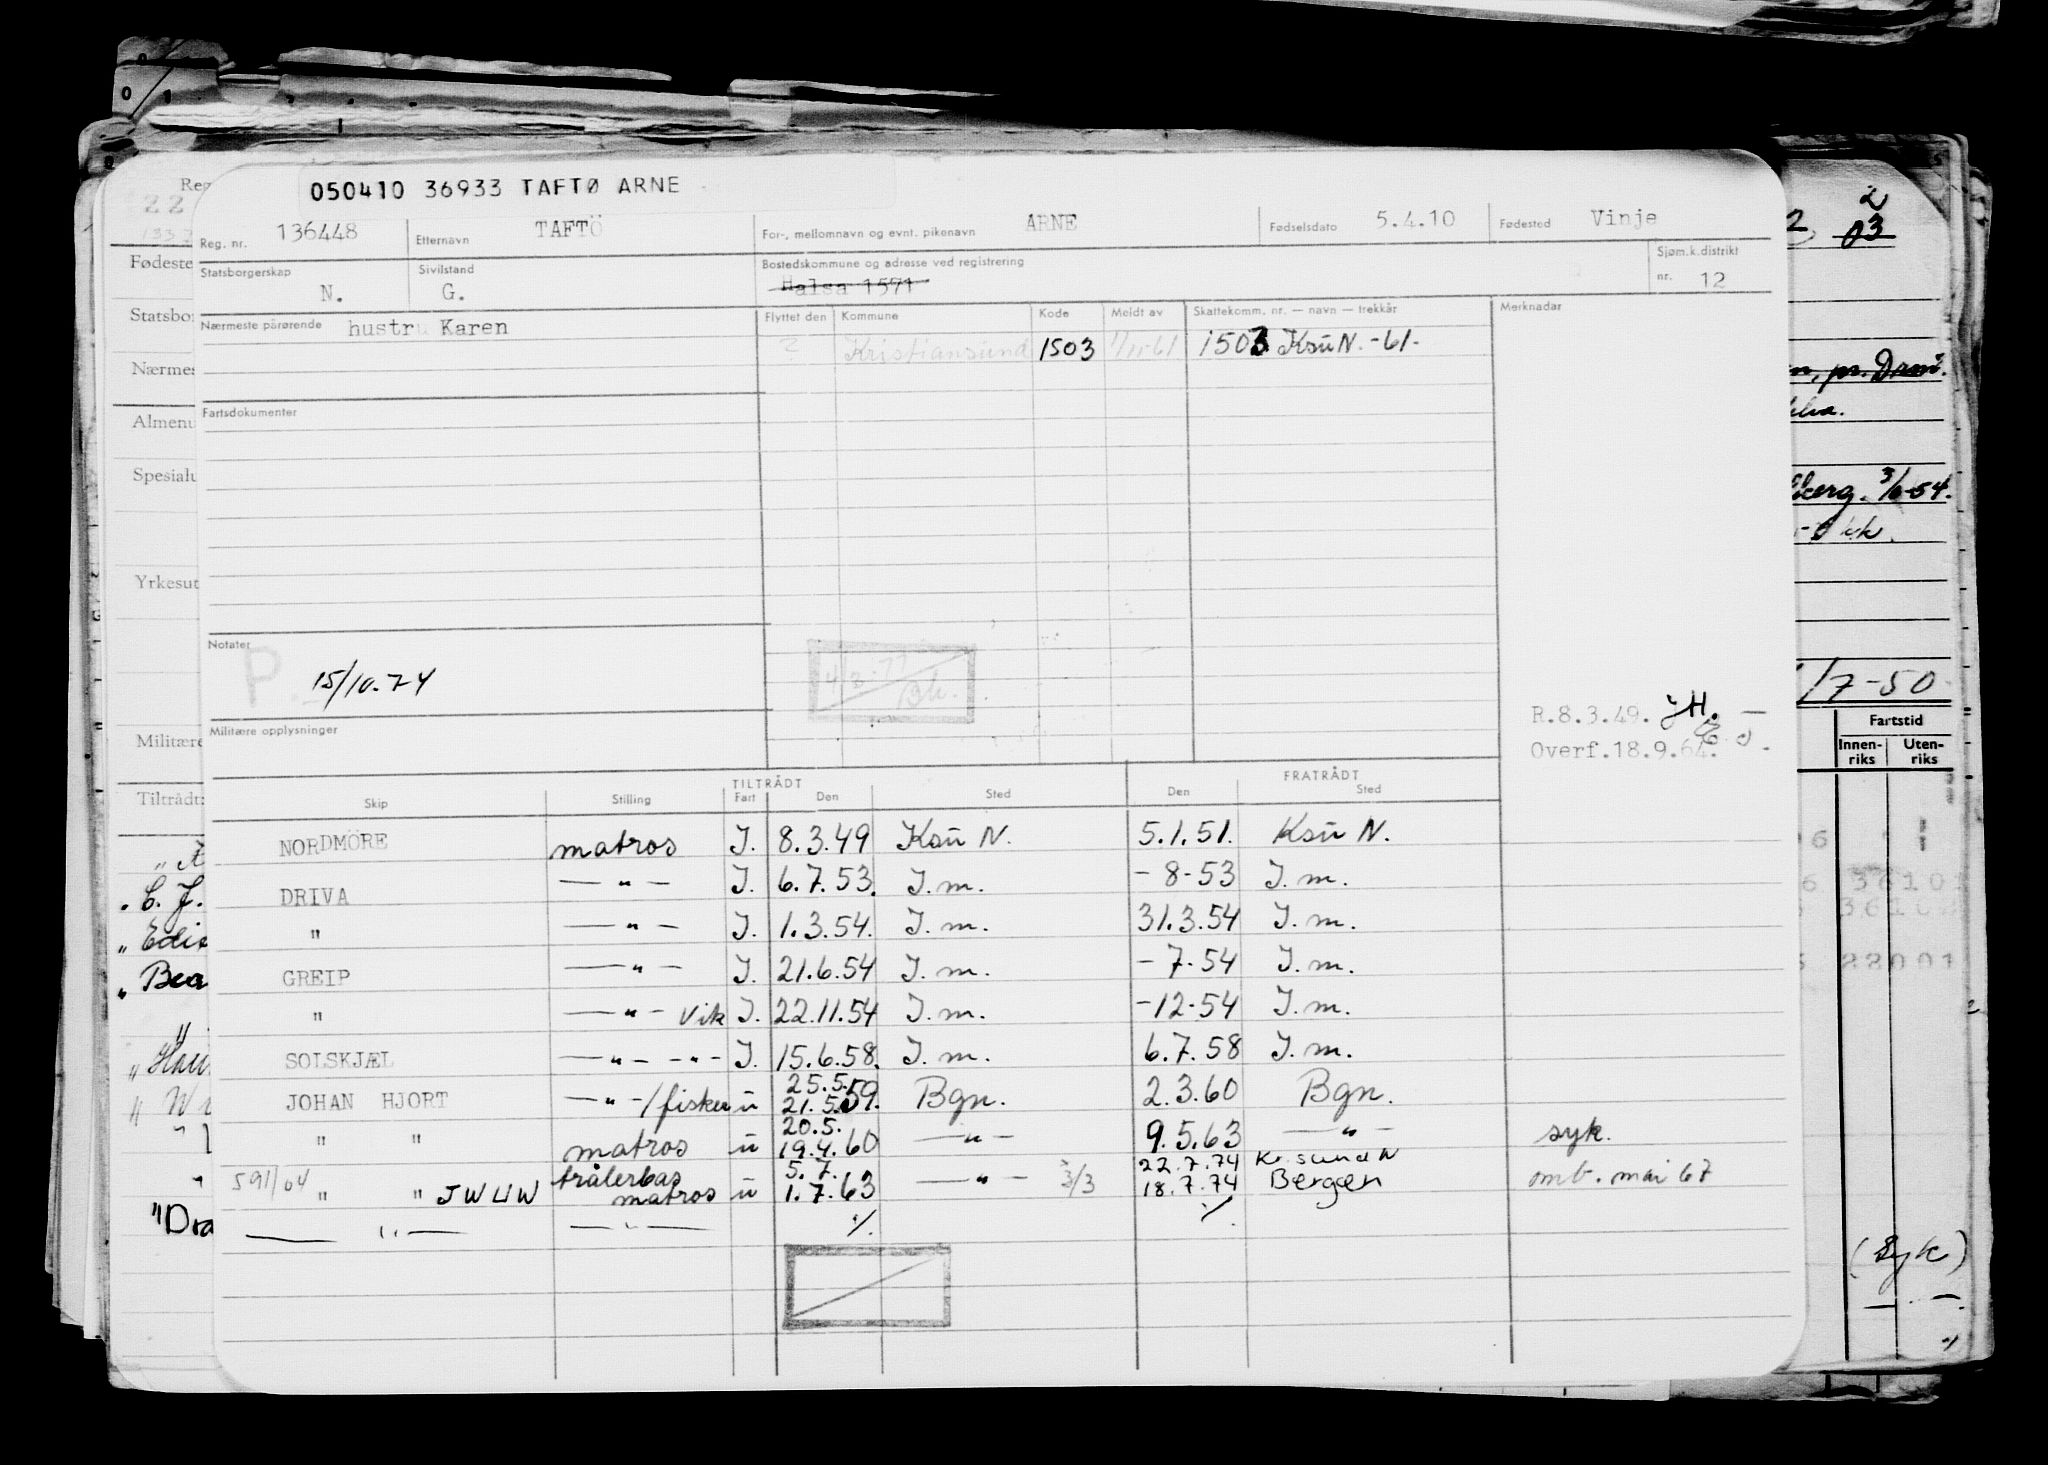 050410 36933 TAFTØ ARNE
Reg. nr. 136448 Etternavn TAFTÖ For-, mellomnavn og evnt. pikenavn ARNE Fødselsdato 5.4.10 Fødested Vinje
Statsborgerskap N. Sivilstand G. Bostedskommune og adresse ved registrering Halsa 1571 Sjøm.k.distrikt nr. 12
Nærmeste pårørende hustru Karen Flyttet den Kommune Kode Meldt av Skattekomm. nr. — navn — trekkår Merknadar
? Kristiansund 1503 1/11-61 1503 Ksū N. -61-
Fartsdokumenter
Notater
P. 15/10.74
Militære opplysninger
R.8.3.49. JH. —
Overf.18.9.64.
TILTRÅDT FRATRÅDT
Skip Stilling Fart Den Sted Den Sted
NORDMÖRE matros J. 8.3.49 Ksū N. 5.1.51. Ksū N.
DRIVA — " — J. 6.7.53. J. m. - 8-53 J. m.
" — " — J. 1.3.54. J. m. 31.3.54 J. m.
GREIP — " — J. 21.6.54 J. m. - 7-54 J. m.
" — " — Vik J. 22.11.54 J. m. -12-54 J. m.
SOLSKJÆL — " — - " - J. 15.6.58. J. m. 6.7.58 J. m.
25.5.
JOHAN HJORT — " — / fisker ū 21.5.59. Bgn. 2.3.60 Bgn.
20.5.
" " matros ū 19.4.60 — " — 9.5.63 — " — syk.
trålerbas 5.7. 22.7.74 Kr.sund N
591/04 " " JWLW matros ū 1.7.63 — " — 3/3 18.7.74 Bergen omb. mai 67
— " — — " — ./. ./.
Reg
22
Fødeste
Statsbor
Nærmes
Almenu
Spesialu
Yrkesut
Militære
Tiltrådt:
" C. J.
" Edi
" Bea
"Dra
2
03
/7-50
Fartstid
Innen-riks Uten-riks
(Syk)